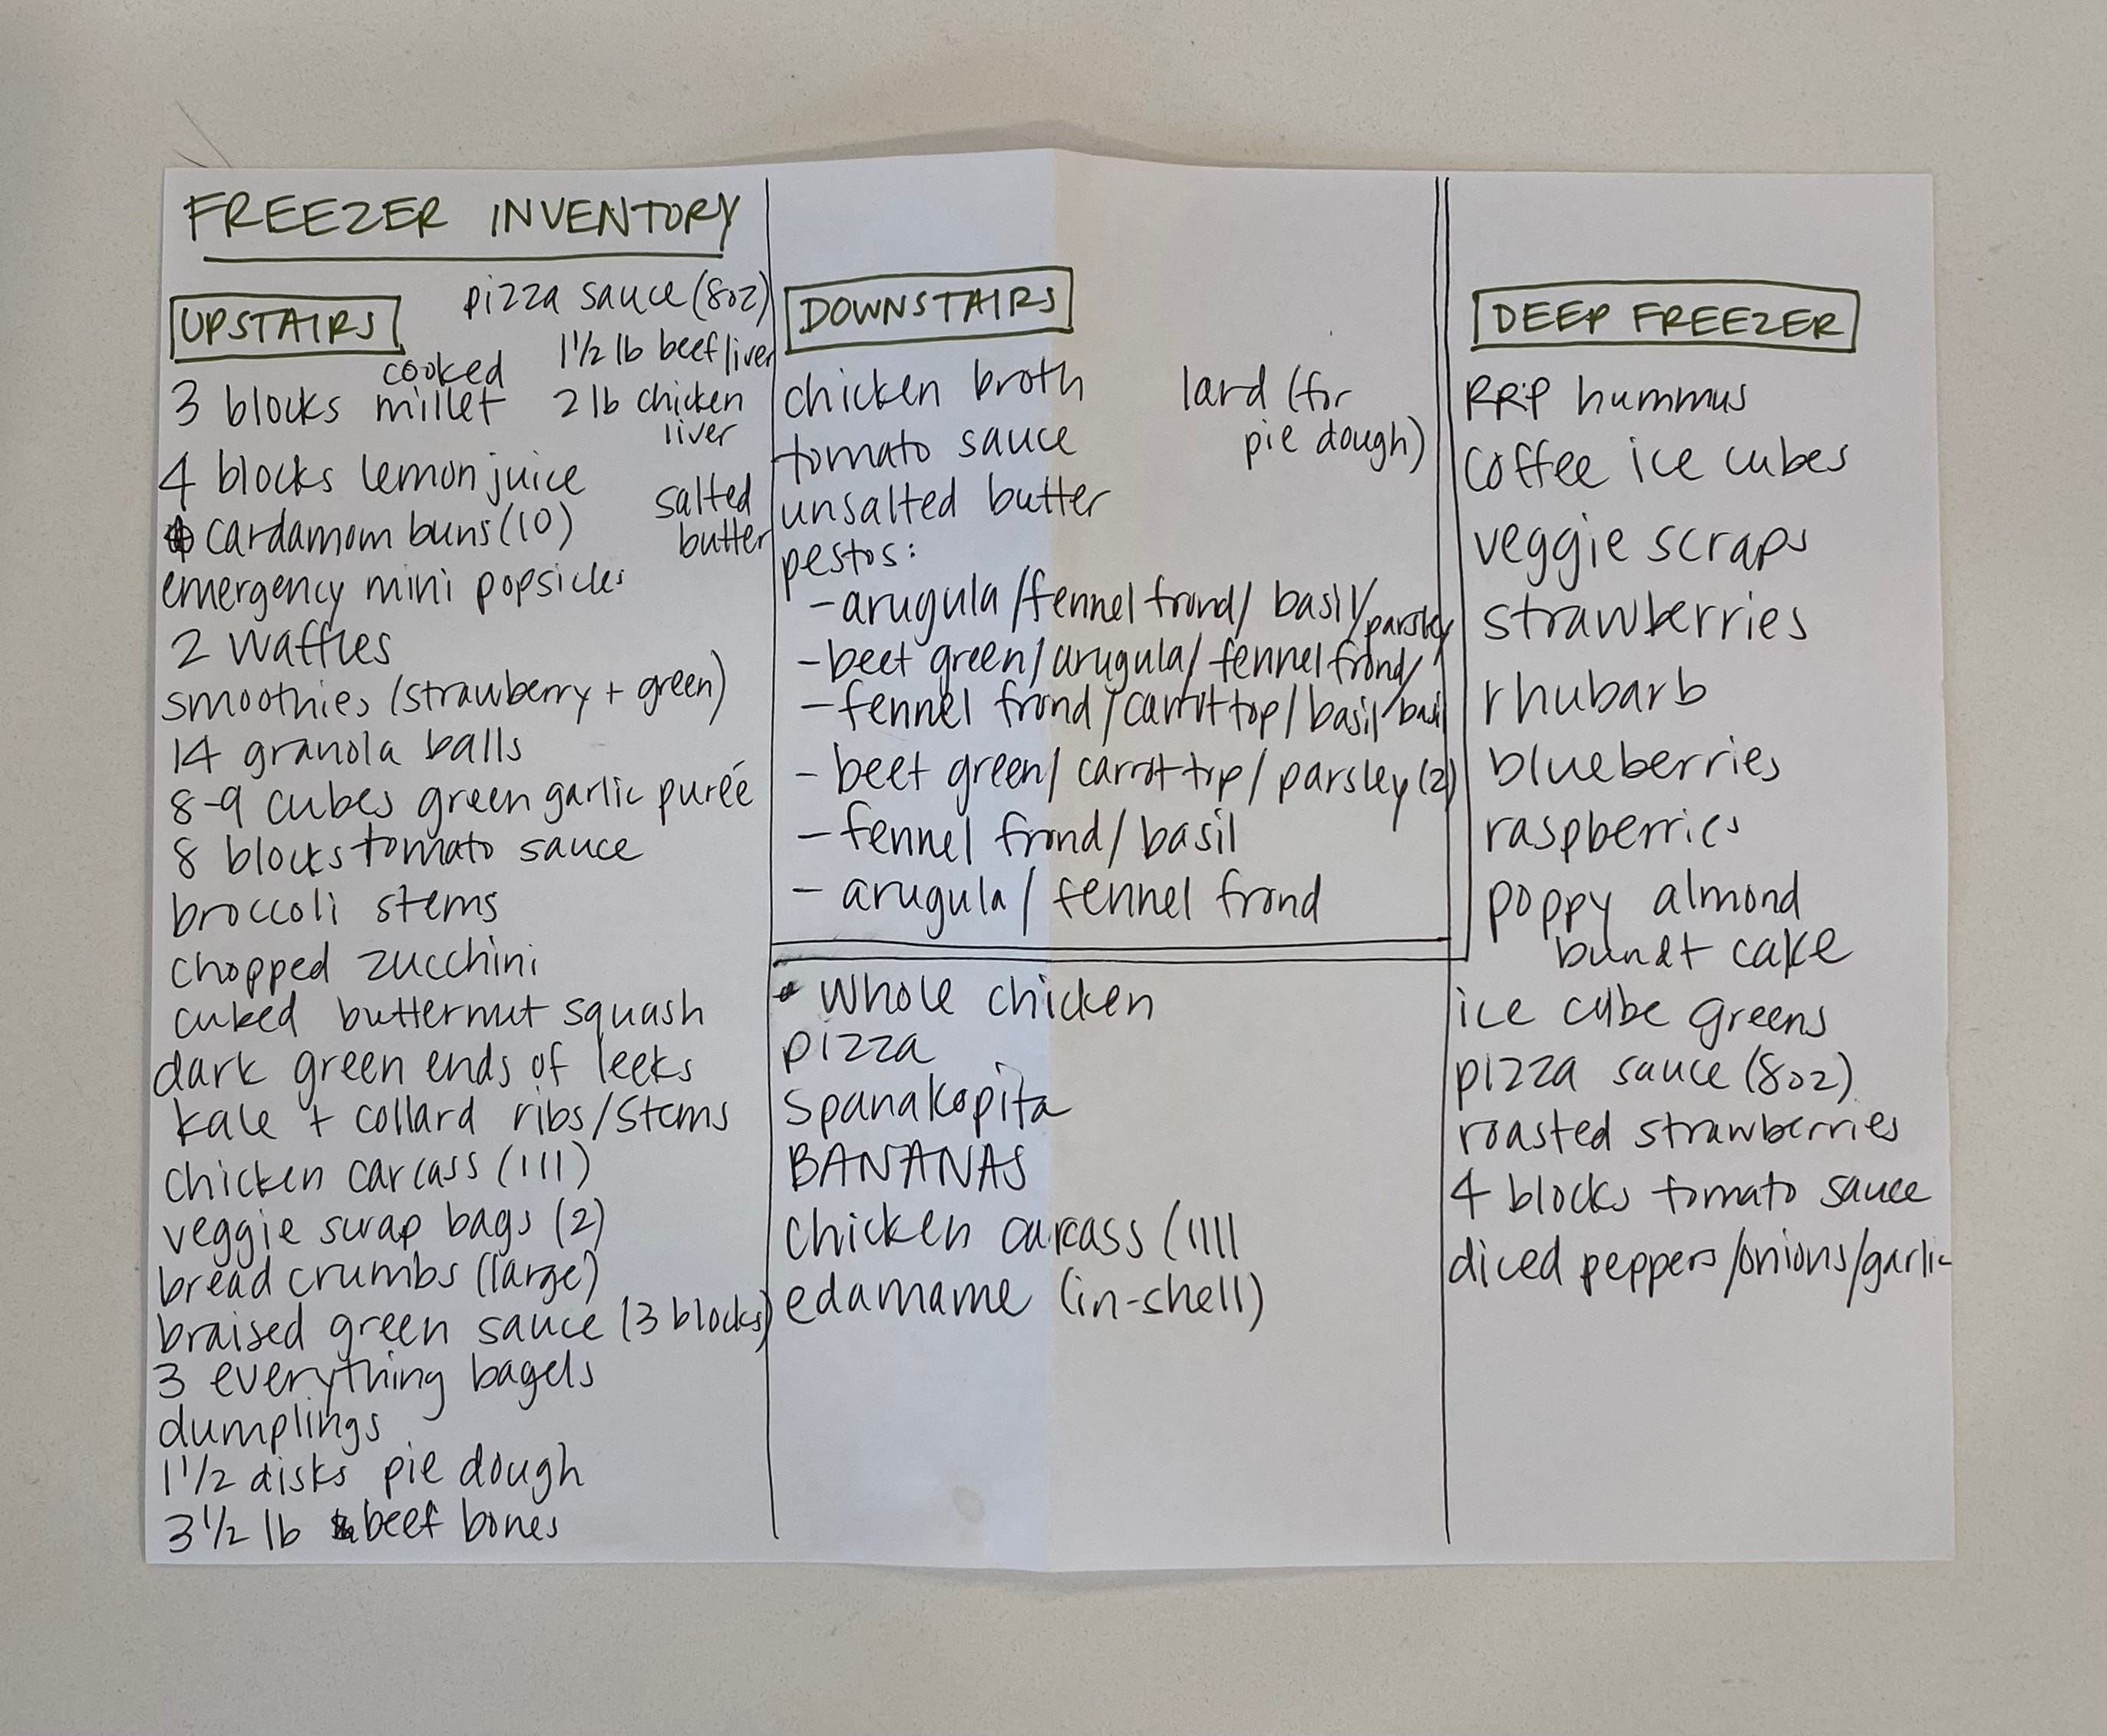 FREEZER INVENTORY
UPSTAIRS
pizza sauce (8oz)
1 1/2 lb beef liver
2 lb chicken
liver
salted
butter
cooked
3 blocks millet
4 blocks lemon juice
cardamom buns (10)
emergency mini popsicles
2 waffles
smoothies (strawberry + green)
14 granola balls
8-9 cubes green garlic purée
8 blocks tomato sauce
broccoli stems
chopped zucchini
cubed butternut squash
dark green ends of leeks
kale + collard ribs/stems
chicken carcass (III)
veggie scrap bags (2)
bread crumbs (large)
braised green sauce (3 blocks)
3 everything bagels
dumplings
1 1/2 disks pie dough
3 1/2 lb beef bones
DOWNSTAIRS
chicken broth
tomato sauce
unsalted butter
lard (for
pie dough)
pestos:
- arugula/fennel frond/ basil/parsley
- beet green/arugula/fennel frond/
basil
- fennel frond/carrot top/basil
- beet green/ carrot top/ parsley (2)
- fennel frond/basil
- arugula/ fennel frond
DEEP FREEZER
RRP hummus
coffee ice cubes
veggie scraps
strawberries
rhubarb
blueberries
raspberries
poppy almond
bundt cake
whole chicken
pizza
spanakopita
BANANAS
chicken carcass (IIII
edamame (in-shell)
ice cube greens
pizza sauce (8oz)
roasted strawberries
4 blocks tomato sauce
diced peppers/onions/garlic